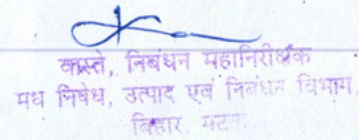 वास्ते, निबंधन महानिरीक्षक
मध निषेध, उत्पाद एवं निबंधन विभाग,
बिहार, पटना